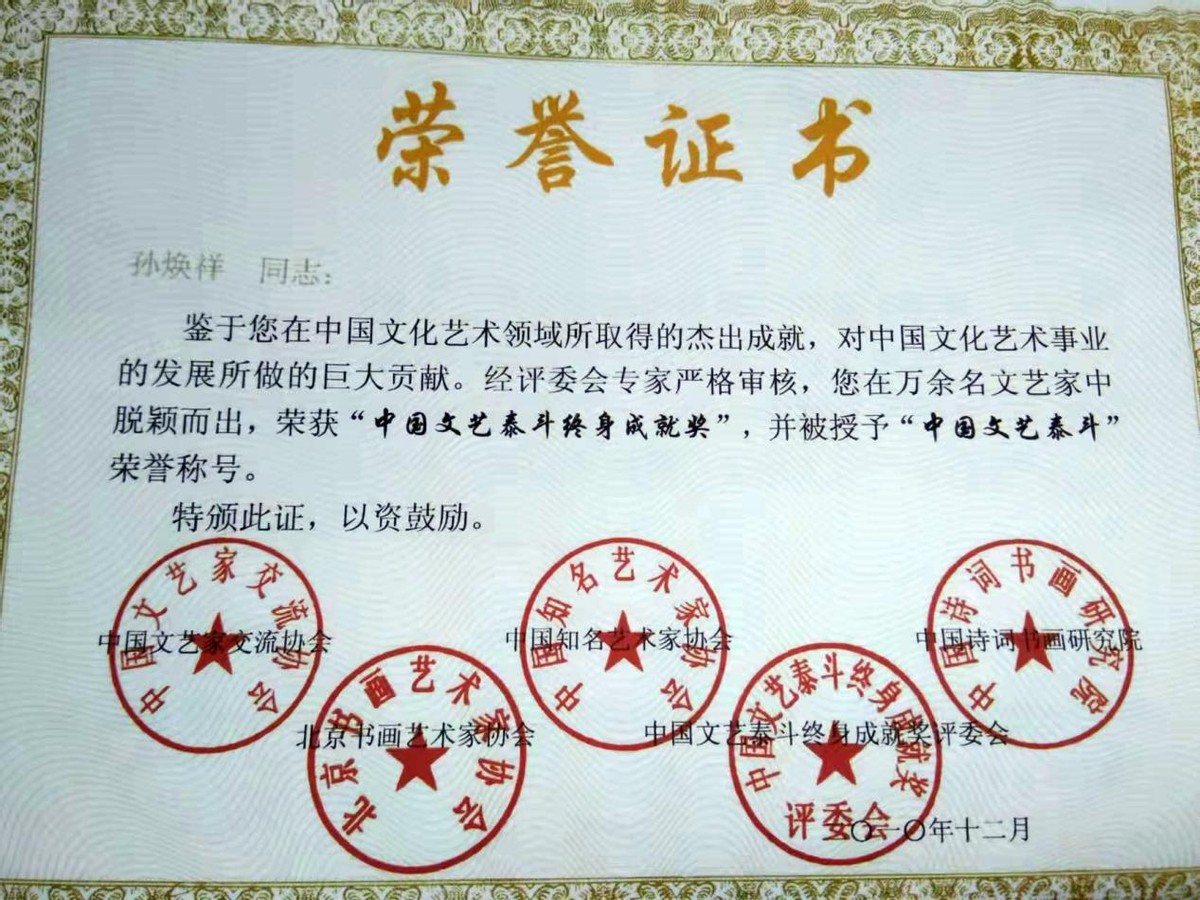 荣誉证书
孙焕祥 同志：
鉴于您在中国文化艺术领域所取得的杰出成就，对中国文化艺术事业
的发展所做的巨大贡献。经评委会专家严格审核，您在万余名文艺家中
脱颖而出，荣获“中国文艺泰斗终身成就奖”，并被授予“中国文艺泰斗”
荣誉称号。
特颁此证，以资鼓励。
中国文艺家交流协会
中国文艺家交流协会
中国知名艺术家协会
中国知名艺术家协会
中国诗词书画研究院
中国诗词书画研究院
北京书画艺术家协会
北京书画艺术家协会
中国文艺泰斗终身成就奖评委会
中国文艺泰斗终身成就奖
评委会
二〇一〇年十二月